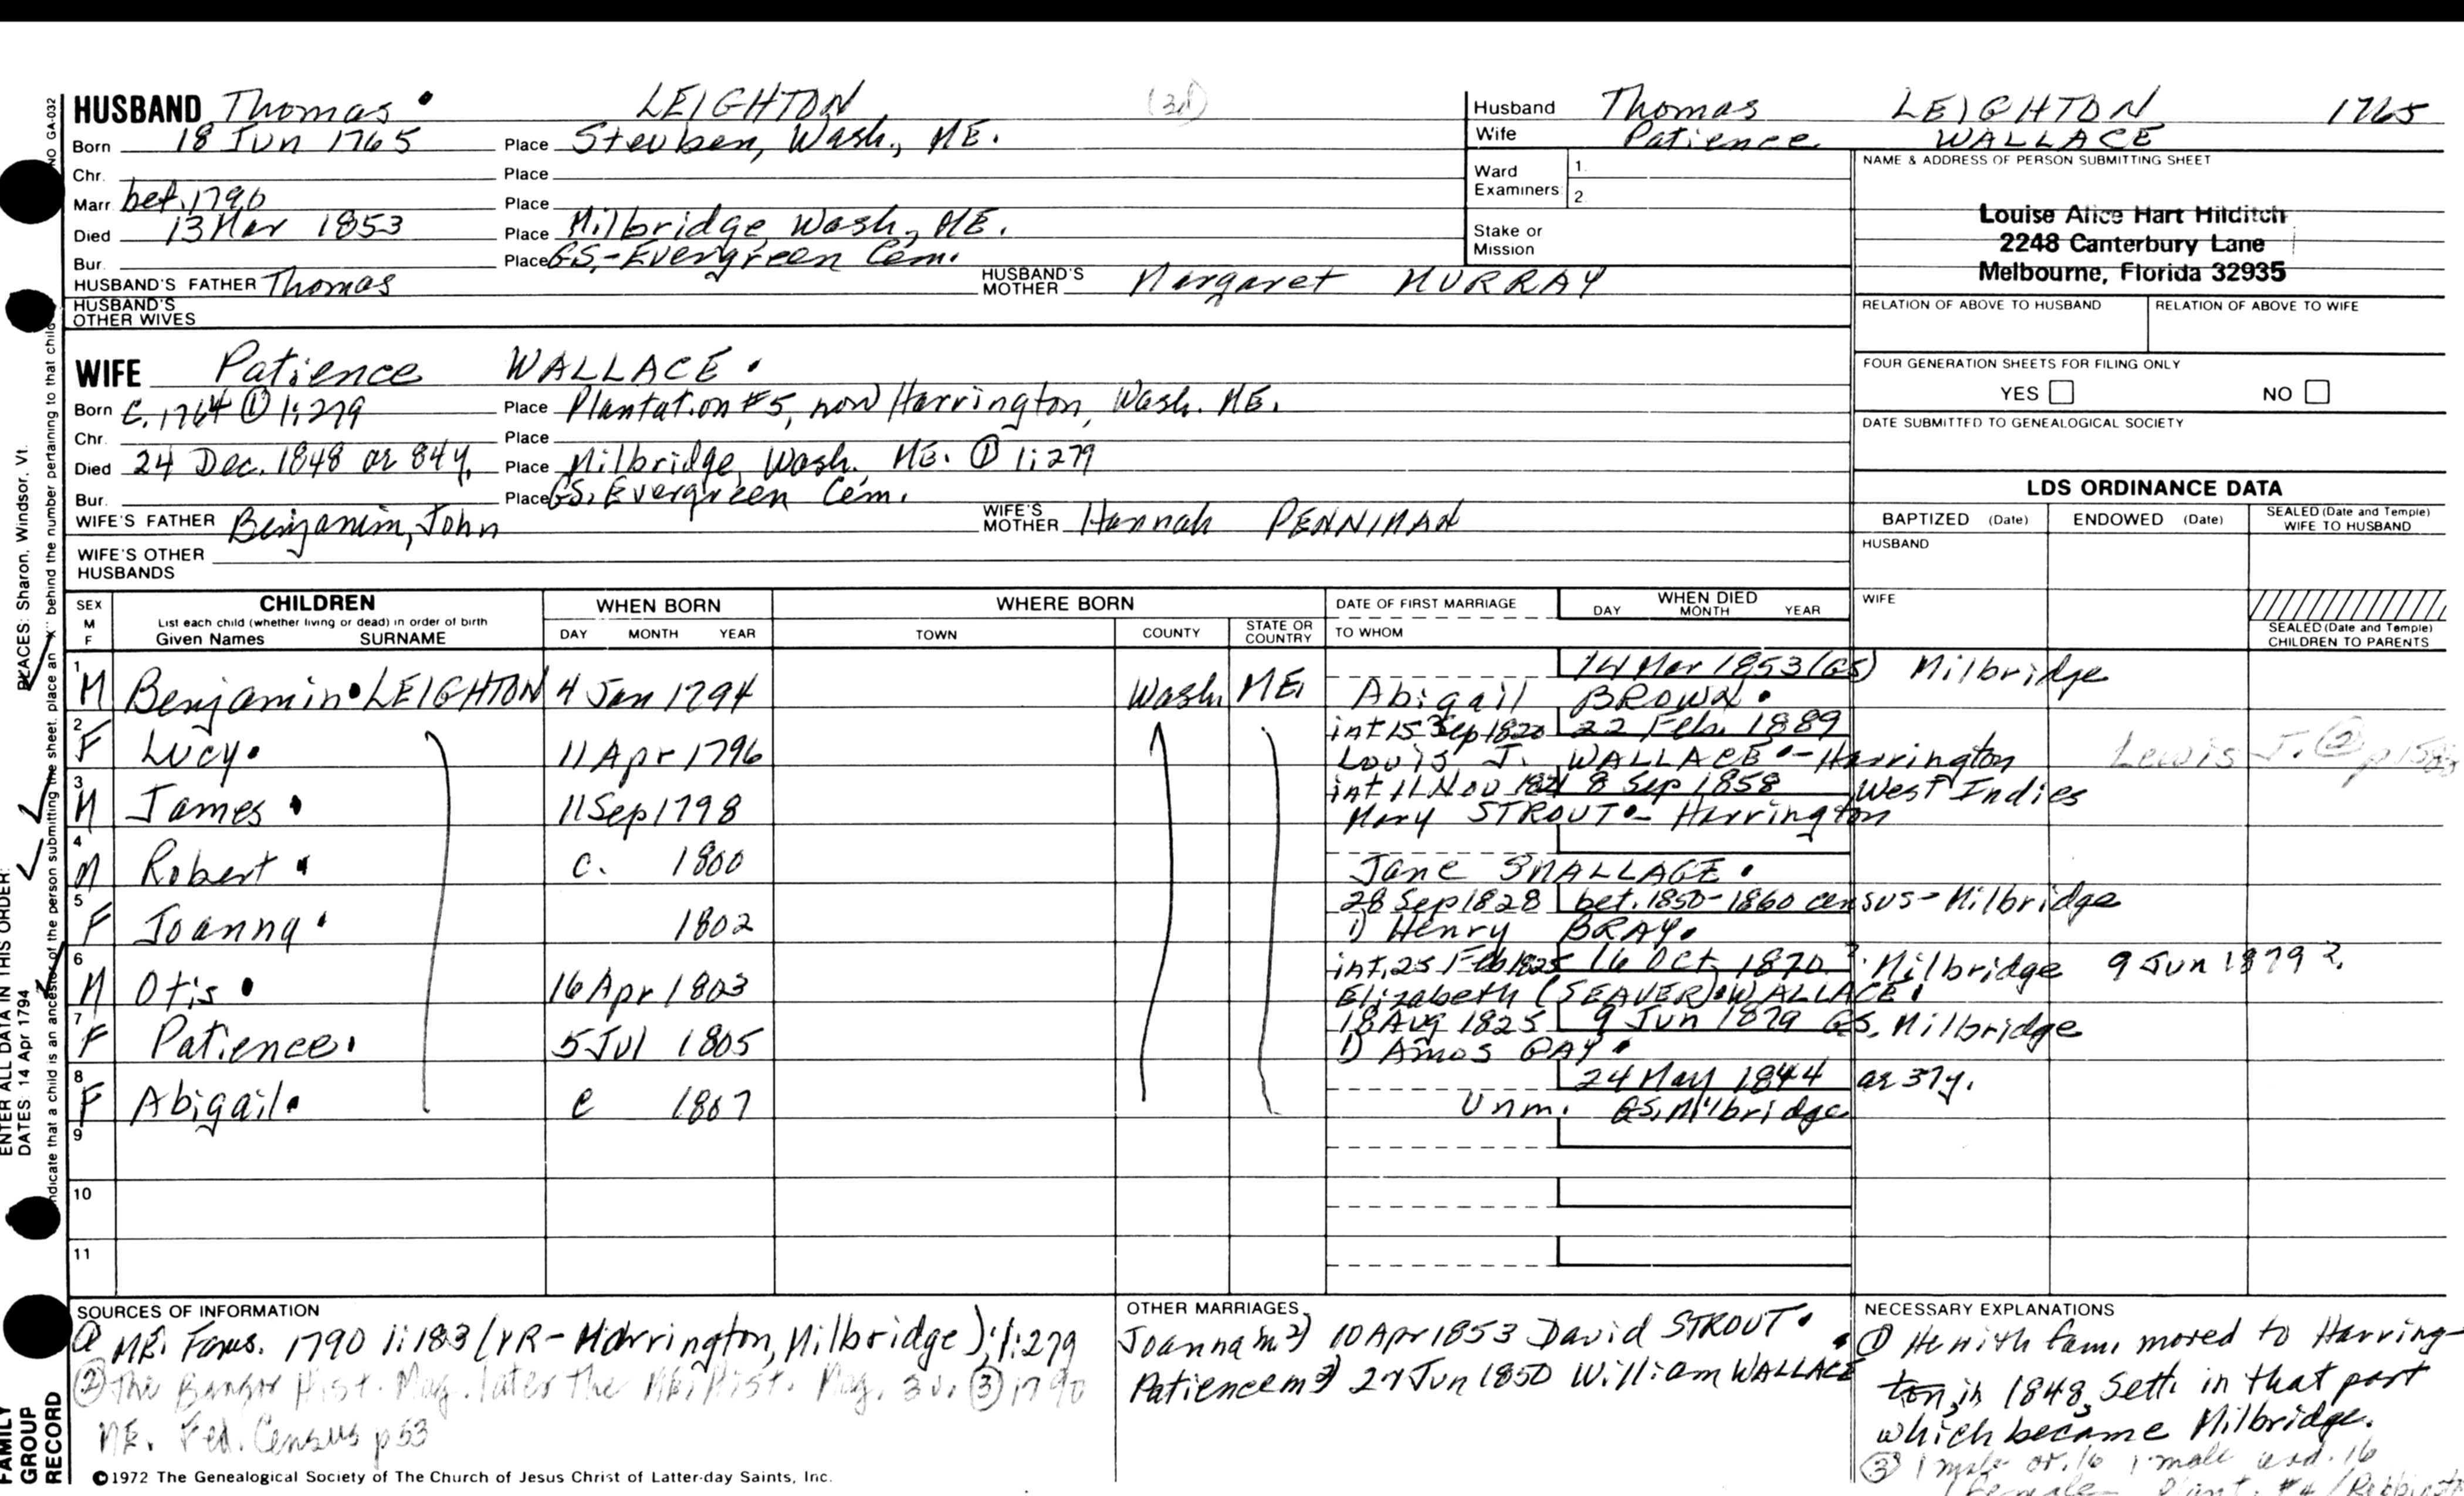 HUSBAND Thomas LEIGHTON (3d)
Born 18 Jun 1765 Place Steuben, Wash., ME.
Chr. Place
Marr. bef. 1790 Place
Died 13 Mar 1853 Place Milbridge, Wash., ME.
Bur. Place GS.-Evergreen Cem.
HUSBAND'S FATHER Thomas HUSBAND'S MOTHER Margaret MURRAY
HUSBAND'S OTHER WIVES
Husband Thomas LEIGHTON 1765
Wife Patience WALLACE
Ward Examiners: 1. 2
Stake or Mission
NAME & ADDRESS OF PERSON SUBMITTING SHEET
Louise Alice Hart Hilditch
2248 Canterbury Lane
Melbourne, Florida 32935
RELATION OF ABOVE TO HUSBAND RELATION OF ABOVE TO WIFE
FOUR GENERATION SHEETS FOR FILING ONLY
YES NO
DATE SUBMITTED TO GENEALOGICAL SOCIETY
WIFE Patience WALLACE
Born C. 1764 ① 1:279 Place Plantation #5, now Harrington, Wash. ME.
Chr. Place
Died 24 Dec. 1848 ae 84y. Place Milbridge, Wash. ME. ① 1:279
Bur. Place GS. Evergreen Cem.
WIFE'S FATHER Benjamin, John WIFE'S MOTHER Hannah PENNIMAN
WIFE'S OTHER HUSBANDS
LDS ORDINANCE DATA
BAPTIZED (Date) ENDOWED (Date) SEALED (Date and Temple) WIFE TO HUSBAND
HUSBAND
WIFE
SEALED (Date and Temple) CHILDREN TO PARENTS
SEX M F CHILDREN List each child (whether living or dead) in order of birth Given Names SURNAME
WHEN BORN DAY MONTH YEAR
WHERE BORN TOWN COUNTY STATE OR COUNTRY
DATE OF FIRST MARRIAGE TO WHOM
WHEN DIED DAY MONTH YEAR
1 M Benjamin LEIGHTON 4 Jan 1794 Wash. ME. 14 Mar 1853 (GS) Milbridge
Abigail BROWN
2 F Lucy 11 Apr 1796 int 15 Sep 1820 22 Feb. 1889
Louis J. WALLACE - Harrington Lewis J. ②
3 M James 11 Sep 1798 int 11 Nov 1821 8 Sep 1858 West Indies
Mary STROUT - Harrington
4 M Robert c. 1800
Jane SMALLAGE
5 F Joanna 1802 28 Sep 1828 bet. 1850-1860 census - Milbridge
1) Henry BRAY
6 M Otis 16 Apr 1803 int. 25 Feb 1825 16 Oct 1870 ? Milbridge 9 Jun 1879 ?
Elizabeth (SEAVER) WALLACE
7 F Patience 5 Jul 1805 18 Aug 1825 9 Jun 1879 GS. Milbridge
1) Amos GAY
8 F Abigail c 1807 24 May 1844 ae 37y.
Unm. GS. Milbridge
9
10
11
SOURCES OF INFORMATION
① ME. Fams. 1790 1:183 (VR-Harrington, Milbridge); 1:279
② The Bangor Hist. Mag. later the ME. Hist. Mag. ③ 1790
ME. Fed. Census p 53
OTHER MARRIAGES
Joanna m 2) 10 Apr 1853 David STROUT
Patience m 27 Jun 1850 William WALLACE
NECESSARY EXPLANATIONS
① He with fam. moved to Harring-
ton, in 1848, Sett. in that part
which became Milbridge.
③ 1 male 1 male 16
©1972 The Genealogical Society of The Church of Jesus Christ of Latter-day Saints, Inc.
FAMILY GROUP RECORD
ENTER ALL DATA IN THIS ORDER:
DATES 14 Apr 1794
PLACES: Sharon, Windsor, Vt.
indicate that a child is an ancestor of the person submitting the sheet, place an "X" behind the number pertaining to that child
NO GA-032